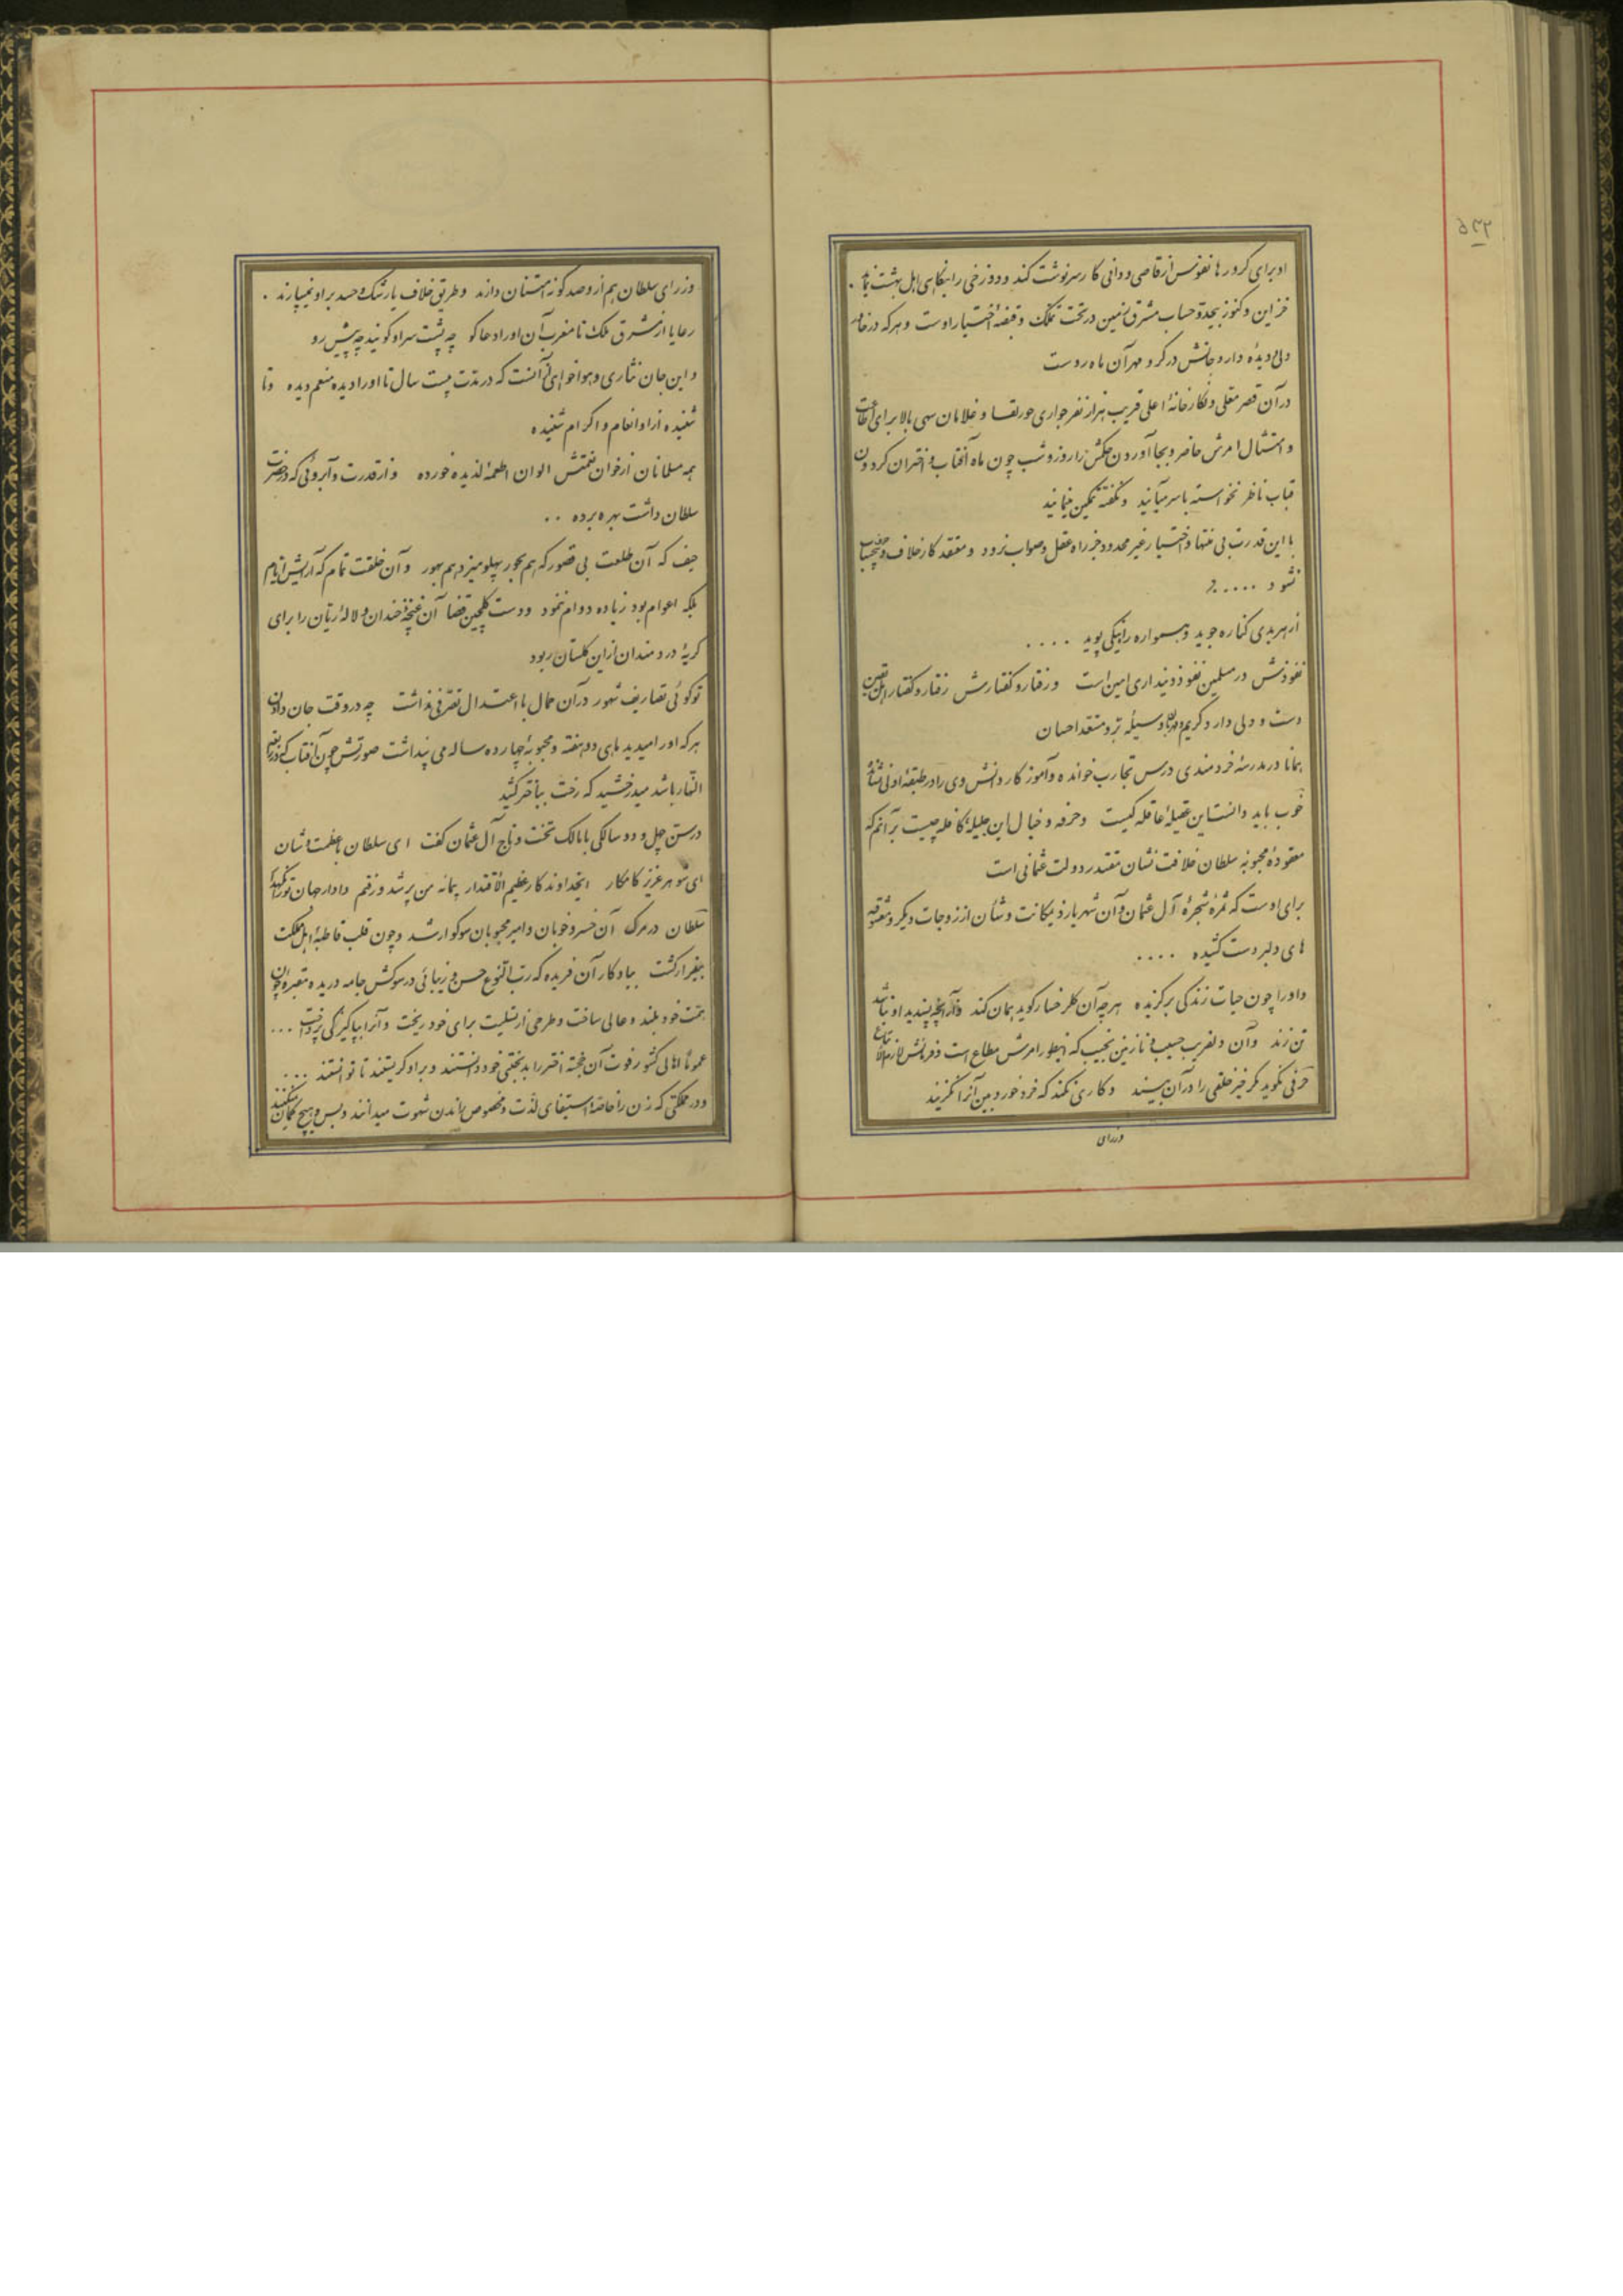 او برای کرورها نفوس از قاصی و دانی کار سرنوشت کند و دوزخی را بنگاهی اهل بهشت نماید
خزاین و کنوز بیحد و حساب مشرق زمین در تحت تملک و قبضهٔ اختیار اوست و هر که در خانه
دلی و دیده دارد جانش در گرو مهر آن ماه روست
در آن قصر معلی و نگارخانهٔ اعلی قریب هزار نفر جواری حور لقا و غلامان سهی بالا برای اطاعت
و امتثال امرش حاضر و بجا آوردن حکمش را روز و شب چون ماه و آفتاب و اختران گردون
قباب ناظر نخواسته با سر میآیند و نگفته تمکین مینمایند
با این قدرت بی منتها و اختیار غیر محدود جز راه عقل و صواب نرود و معتقد کار خلاف و
نشود .....
از هر بدی کناره جوید و همواره راه نیکی پوید ....
نفوذش در مسلمین نفوذ دینداری امین است و رفتار و گفتارش رفتار و گفتار اهل یقین
دست و دلی دارد کریم و مهربان و سیلهٔ بر و منتقد احسان
همانا در مدرسهٔ خردمندی درس تجارب خوانده و آموزکار دانش وی را در طبقهٔ اولی
خوب باید دانست این عقیلهٔ عاقله کیست و حرفه و خیال این جلیلهٔ کامله چیست بر آنم که
معقودهٔ محبوبهٔ سلطان خلافت نشان مقتدر دولت عثمانی است
برای اوست که ثمرهٔ شجرهٔ آل عثمان و آن شهریار ذیمکانت و شأن از زوجات دیگر و معشوقه
های دلبر دست کشیده ....
و او را چون حیات زندگی برگزیده هر چه آن گلرخسار گوید همان کند و آنچه پسندید او نباشد
تن زند و آن دلفریب حبیب و نازنین نجیب که اینطور امرش مطاع است و فرمانش لازم الاتباع
حرفی نگوید مگر خیر خلقی را در آن بیند و کاری نکند که خرد خورده بین آنرا نگزیند
وزرای
وزرای سلطان هم از او صد گونه امتنان دارند و طریق خلاف یا رشک و حسد بر او نمیسپارند .
رعایا از مشرق ملک تا مغرب آن او را دعا گو چه پشت سر او گویند چه پیش رو
و این جان نثاری و هواخواهی آنست که در مدت بیست سال تا او را دیده منعم دیده و تا
شنیده از او انعام و اکرام شنیده
همه مسلمانان از خوان نعمتش الوان اطعمهٔ لذیذه خورده و از قدرت و آبروئی که در حضرت
سلطان داشت بهره برده ..
حیف که آن طلعت بی قصور که هم بحور پهلو میزد هم بهور و آن خلقت تمام که آرایش ایام
بلکه اعوام بود زیاده دوام ننمود و دست گلچین قضا آن غنچهٔ خندان و لالهٔ ریان را برای
گریهٔ دردمندان از این گلستان ربود
تو گوئی تصاریف شهور در آن جمال با اعتدال تصرفی نداشت چه در وقت جان دادن
هر که او را میدید ماهی دو هفته و محبوبهٔ چهارده ساله می پنداشت صورتش چون آفتاب که در رابعة
النهار باشد میدرخشید که رخت بباختر کشید
در سن چهل و دو سالگی با مالک تخت و تاج آل عثمان گفت ای سلطان با عظمت و شان
ای شوهر عزیز کامکار ایخداوندکار عظیم الاقتدار پیمانه من پر شد و رفتم دادار جهان تو را
سلطان در مرگ آن خسرو خوبان و امیر محبوبان سوگوار شد و چون قلب قاطبهٔ اهل مملکت
بیقرار گشت بیادگار آن فریده که رب النوع حسن و زیبائی در سوکش جامه دریده مقبرهٔ چون
همت خود بلند و عالی ساخت و طرحی از تسلیت برای خود ریخت و آنرا بپاکیزگی پرداخت ...
عموم اهالی کشور فوت آن خجسته اختر را بدبختی خود دانستند و بر او گریستند تا توانستند ...
و در مملکتی که زن را خاصهٔ استیفای لذت و مخصوص راندن شهوت میدانند و بس و هیچ گمان نمیکنند